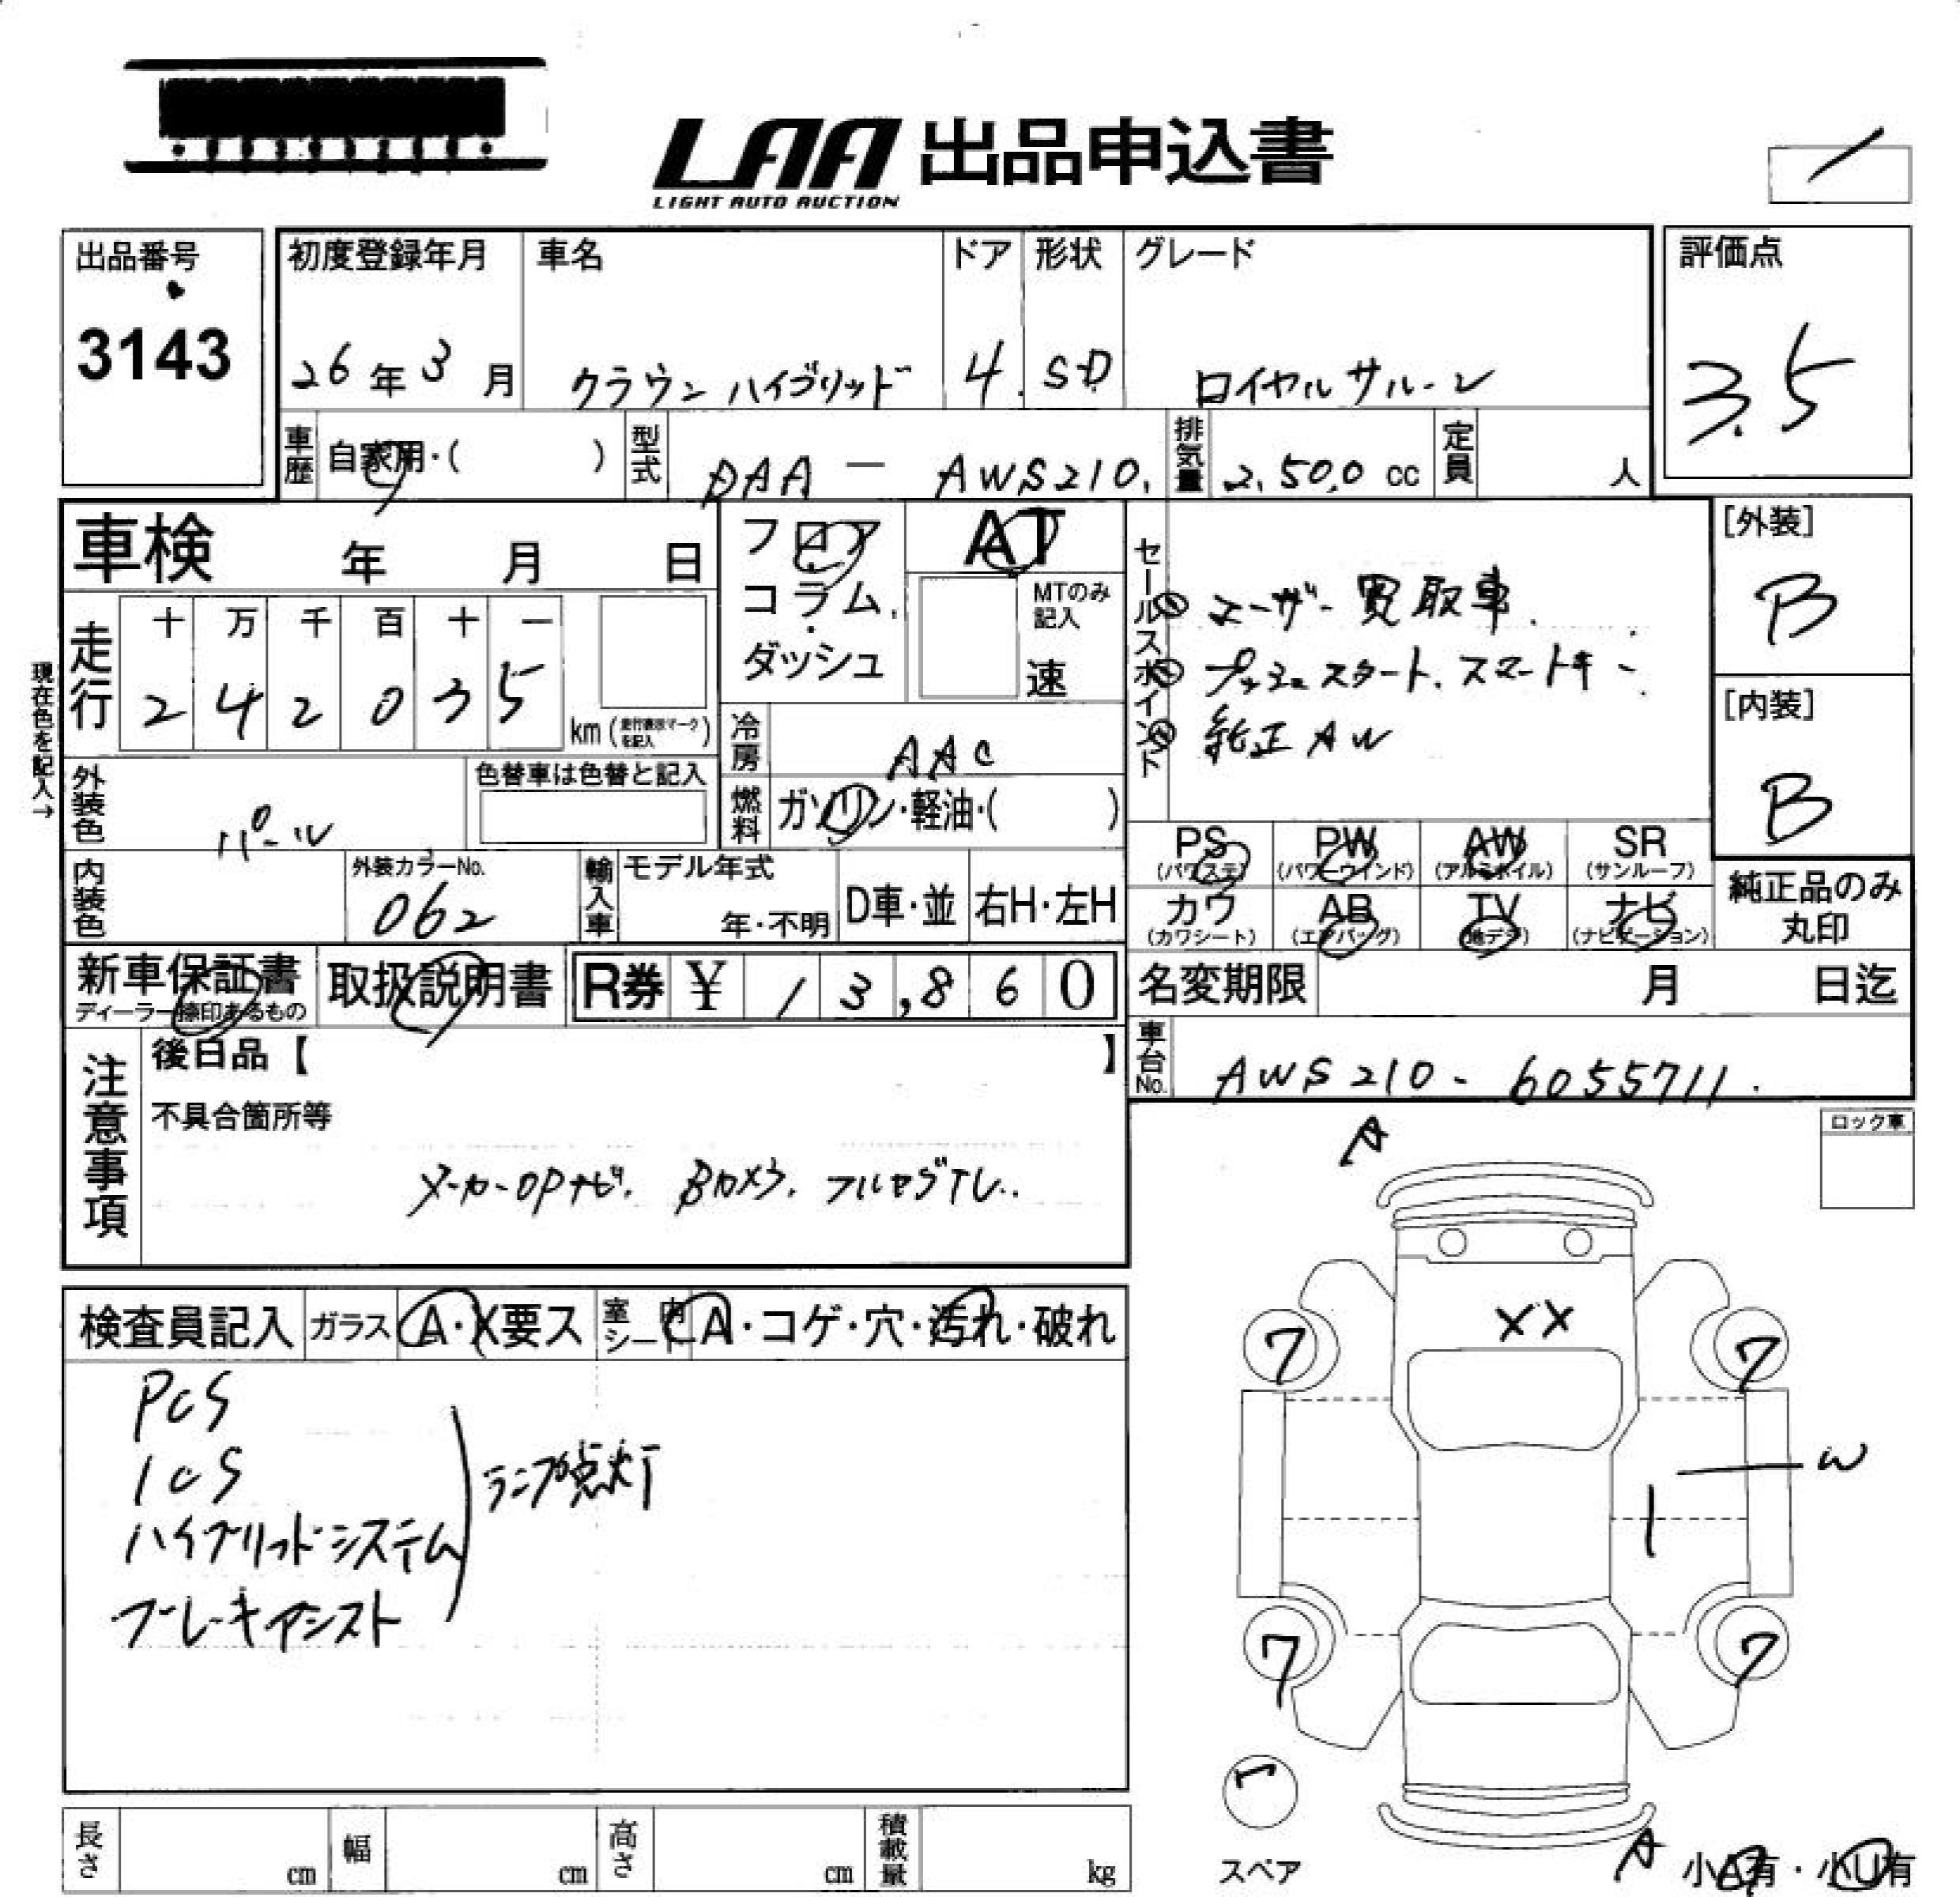 LAA 出品申込書
LIGHT AUTO AUCTION
出品番号
3143
初度登録年月
26年3月
車名
クラウン ハイブリッド
ドア
4
形状
SD
グレード
ロイヤルサルーン
評価点
3.5
車歴
自家用・( )
型式
DAA — AWS210.
排気量
2,500 cc
定員
人
車検 年 月 日
フロア
コラム
ダッシュ
AT
MTのみ記入
速
セールスポイント
① ユーザー買取車.
② プッシュスタート. スマートキー
③ 純正AW
[外装]
B
[内装]
B
現在色を記入→
走行
十 万 千 百 十 一
2 4 2 0 3 5
km (走行表示マークを記入)
冷房
AAC
燃料
ガソリン・軽油・( )
外装色
パール
色替車は色替と記入
内装色
外装カラーNo.
062
輸入車
モデル年式
年・不明
D車・並
右H・左H
PS (パワステ)
PW (パワーウインド)
AW (アルミホイル)
SR (サンルーフ)
カワ (カワシート)
AB (エアバッグ)
TV (地デジ)
ナビ (ナビゲーション)
純正品のみ丸印
新車保証書
ディーラー捺印あるもの
取扱説明書
R券 ¥ 13,860
名変期限 月 日迄
車台No.
AWS210-6055711.
注意事項
後日品【 】
不具合箇所等
メーカーOPナビ. Bカメラ. フルセグTV.
ロック車
検査員記入
ガラス
A・X要ス
室内シート
A・コゲ・穴・汚れ・破れ
PCS
ICS
ハイブリッドシステム
ブレーキアシスト
ランプ点灯
A
XX
7
7
W
7
7
スペア
A
小A有・小U有
長さ cm
幅 cm
高さ cm
積載量 kg